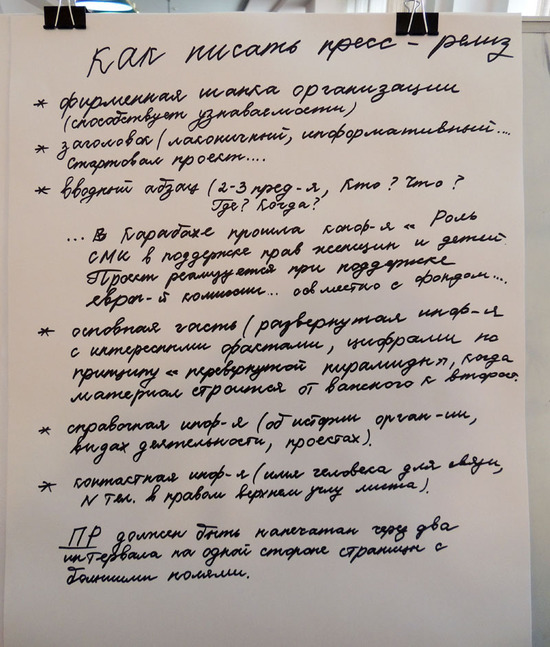 Как писать пресс-релиз
* фирменная шапка организации
(способствует узнаваемости)
* заголовок (лаконичный, информативный....
Стартовал проект....
* вводный абзац (2-3 пред-я, Кто? Что?
Где? Когда?
... В Карабахе прошла конф-я « Роль
СМК в поддержке прав женщин и детей.
Проект реализуется при поддержке
европ-й комиссии... совместно с фондом....
* основная часть (развернутая инф-я
с интересными фактами, цифрами по
принципу «перевернутой пирамиды», когда
материал строится от важного к второст.
* справочная инф-я (об истории орган-ии,
видах деятельности, проектах).
* контактная инф-я (имя человека для связи,
N тел. в правом верхнем углу листа).
ПР должен быть напечатан через два
интервала на одной стороне страницы с
большими полями.